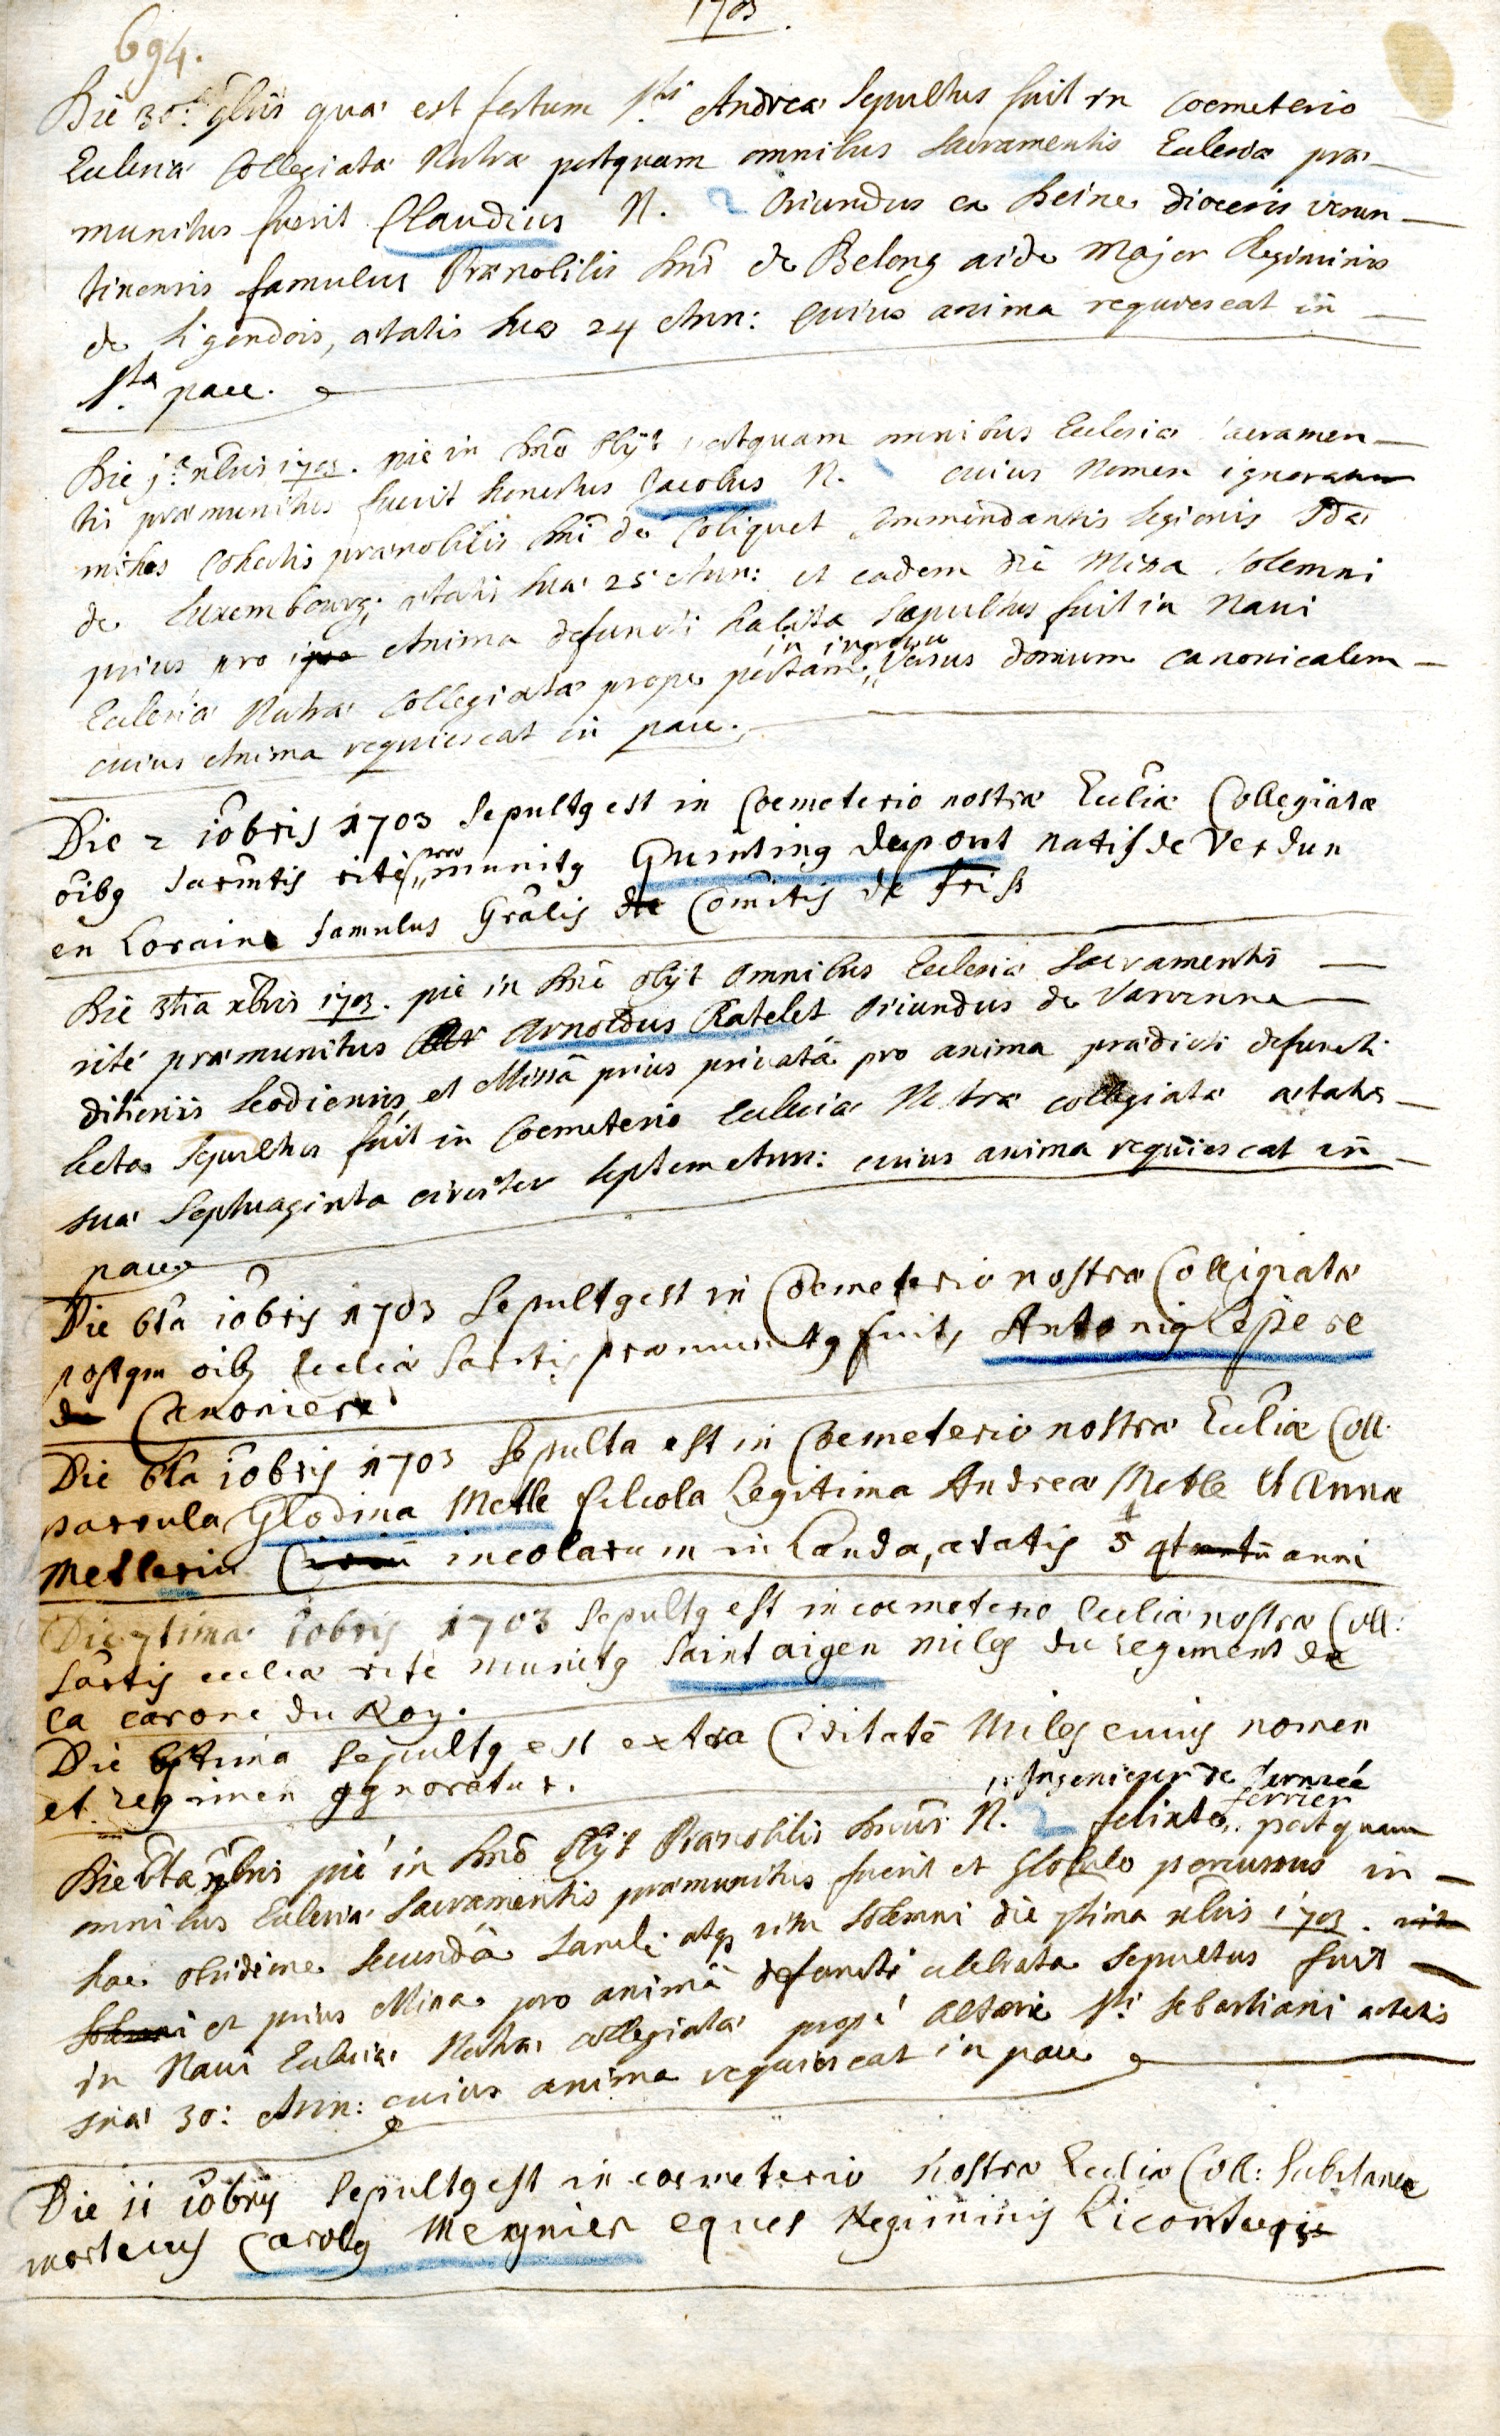 1703.
694.
Die 30a 9bris qua est festum Sti Andreæ Sepultus fuit in Coemeterio
Ecclesiæ Collegiatæ Nostræ postquam omnibus Sacramentis Ecclesiæ præ-
munitus fuerit Claudius N. oriundus ex heine diocesis virun-
tinensis famulus Prænobilis Dni de Belong aide Major Regiminis
de ligendois, ætatis suæ 24 Ann: cuius anima requiescat in
Sta pace.
Die ja xbris 1703. pie in Dno obijt postquam omnibus Ecclesiæ sacramen-
tis præmunitus fuerit honestus Jacobus N. cuius Nomen ignoratur
miles Cohortis prænobilis Dni de Coliquet Commendantis legionis 
de Luxembourg, ætatis suæ 25 Ann: et eadem die Missa Solemni
prius pro ipso Anima defuncti habita Sepultus fuit in Navi
Ecclesiæ Nostræ Collegiatæ prope portam in ingressu versus domum canonicalem
cuius Anima requiescat in pace.
Die 2 10bris 1703 Sepultg est in Coemeterio nostræ Eccliæ Collegiatæ
oibg Sacmtis rite præmunitg Guinting dupont natif de Verdun
en Loraine famulus Gralis de Comitis de friss
Die 3tia xbris 1703. pie in Dno obijt omnibus Ecclesiæ Sacramentis
rité præmunitus Ar Arnoldus Ratelet oriundus de Varvenne
ditionis Leodiensis, et Missâ prius privatâ pro anima prædicti defuncti
lecta Sepultus fuit in Coemeterio Ecclesiæ Nostræ collegiatæ ætatis
suæ Septuaginta circiter septem Ann: cuius anima requiescat in
pace
Die 6ta 10bris 1703 Sepultg est in Coemeterio nostræ Collegiatæ
postqm oibg Ecclia Sacrtis præmunitg fuit, Antonig Lepere
de Canoniere
Die 6ta 10bris 1703 Sepulta est in Coemeterio nostræ Eccliæ Coll.
parvula Glodina Metle filiola Legitima Andreæ Metle et Annæ
Metlerin incolarum in Landa, ætatis 5 anni
Die 7tima 10bris 1703 Sepultg est in coemeterio Eccliæ nostræ Coll:
Sacrtis eccliæ rite munitg Saint aigen miles du regement de
la carone du Roy.
Die 7tima Sepultg est extra Civitatē Miles cuius nomen
et regimen ignoratur.
Ingenieur de l'armeé
ferrier
Die 6ta xbris pié in Dno obijt Prænobilis Dnus N. felinte, postquam
omnibus Ecclesiæ Sacramentis præmunitus fuerit et Globulo percussus in
hac obsidione secundâ Landæ atq ritu Solemni die 7tima xbris 1703.
Solemni et prius Missa pro animâ defuncti celebrata Sepultus fuit
in Navi Ecclesiæ Nostræ collegiatæ propé Altare Sti Sebastiani ætatis
suæ 30: Ann: cuius anima requiescat in pace
Die 11 10bris Sepultg est in coemeterio nostræ Eccliæ Coll: Subitanee
mortuus Carolg Mergnier eques Regiminis